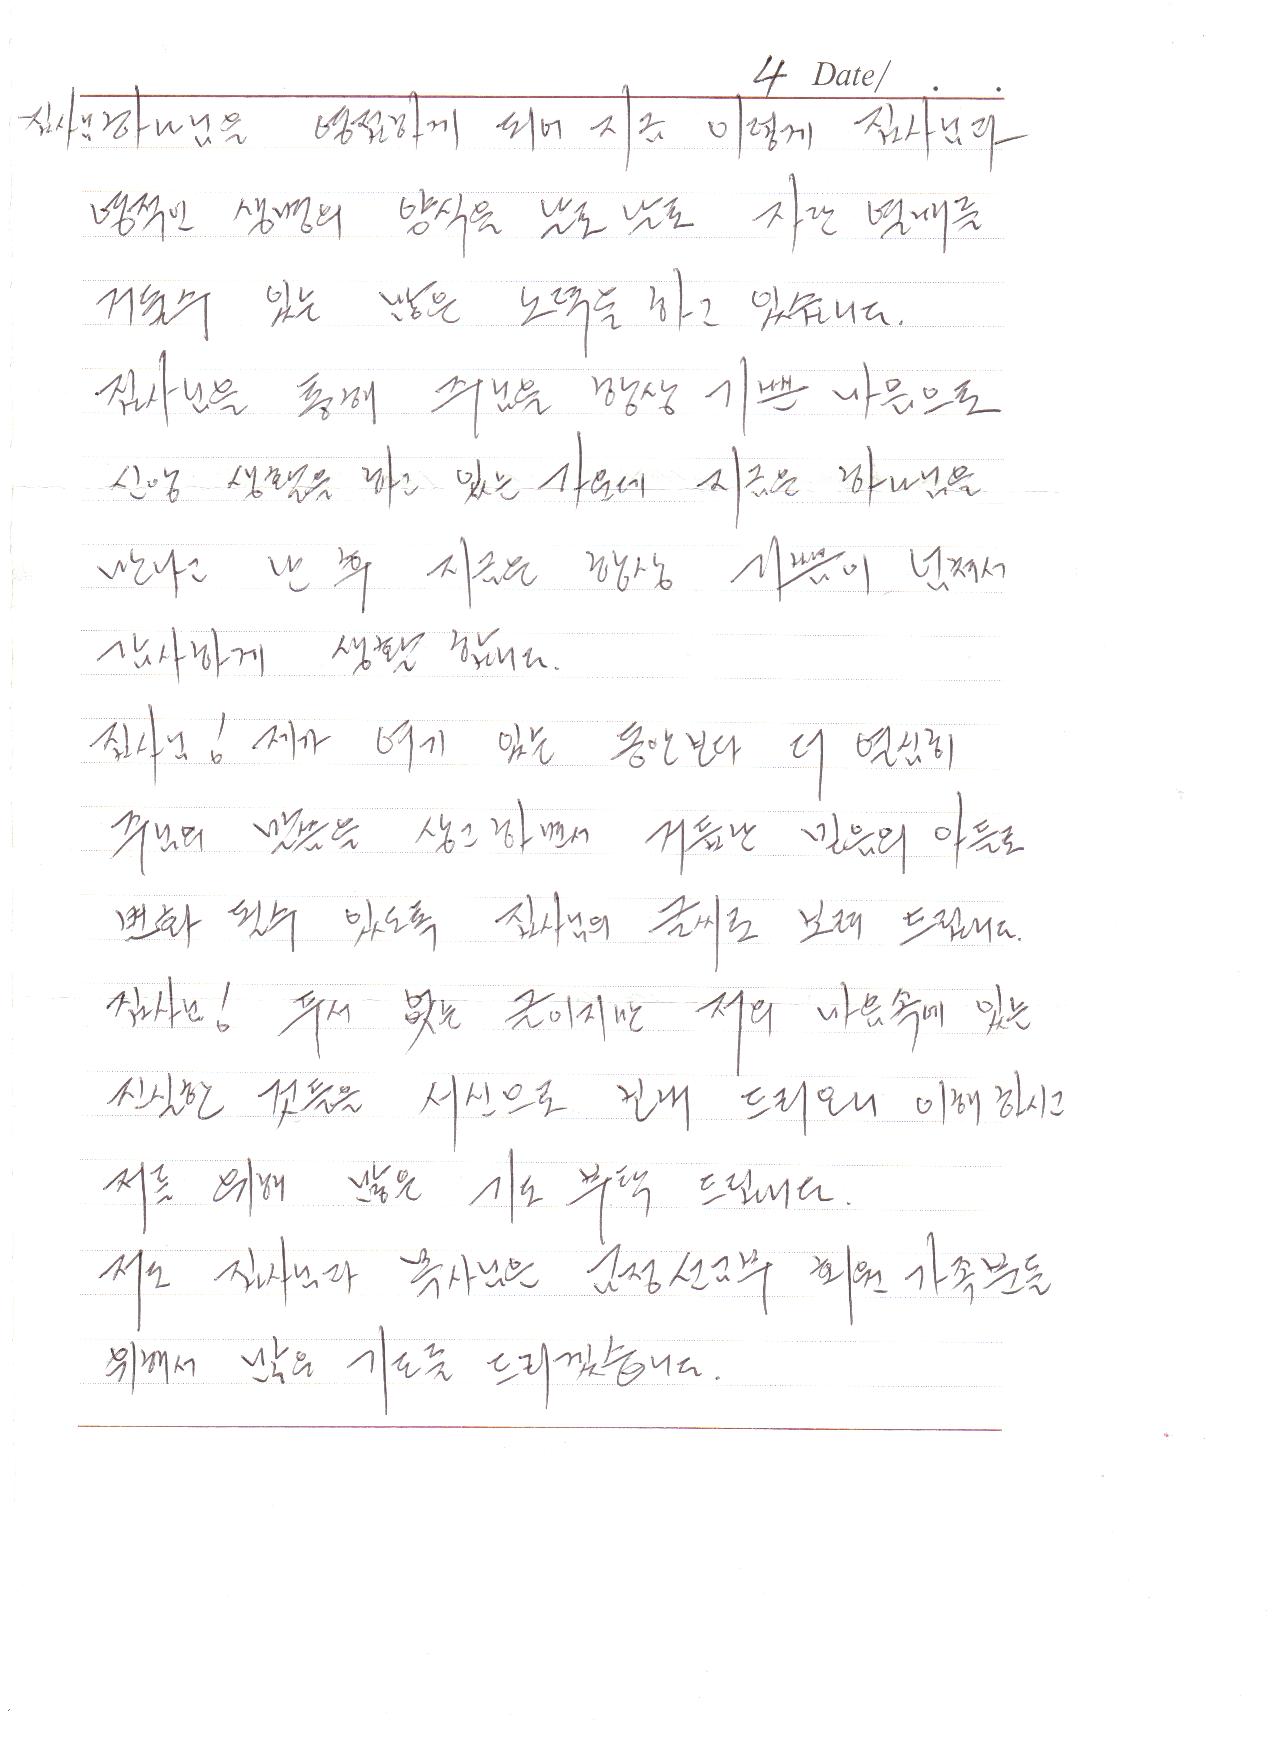 4 Date/ . .
집사님 하나님을 영접하게 되어 지금 이렇게 집사님과
영적인 생명의 양식을 날로 날로 자란 열매를
거둘수 있는 많은 노력들 하고 있습니다.
집사님을 통해 주님을 항상 기쁜 마음으로
신앙 생활을 하고 있는 가운데 지금은 하나님을
만나고 난 후 지금은 항상 기쁨이 넘쳐서
감사하게 생활 합니다.
집사님! 제가 여기 있는 동안보다 더 열심히
주님의 말씀을 생각하면서 거듭난 믿음의 아들로
변화 될수 있도록 집사님의 글씨로 보여 드립니다.
집사님! 두서 없는 글이지만 저의 마음속에 있는
진실한 것들을 서신으로 전해 드리오니 이해 하시고
저를 위해 많은 기도 부탁 드립니다.
저도 집사님과 목사님은 교정선교부 회원 가족분들
위해서 많은 기도를 드리겠습니다.